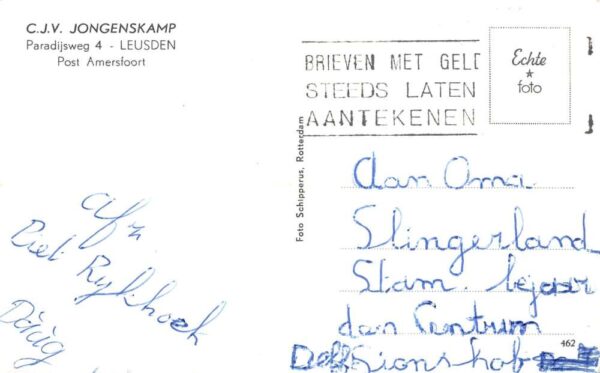 C.J.V. JONGENSKAMP
Paradijsweg 4 - LEUSDEN
Post Amersfoort
BRIEVEN MET GELD
STEEDS LATEN
AANTEKENEN
Echte
foto
Foto Schipperus, Rotterdam
Aan Oma
Slingerland
Stam. bejaar
dan Centrum
Delf Sionshof
462
afz
Piet Rijkhoek
Dáág